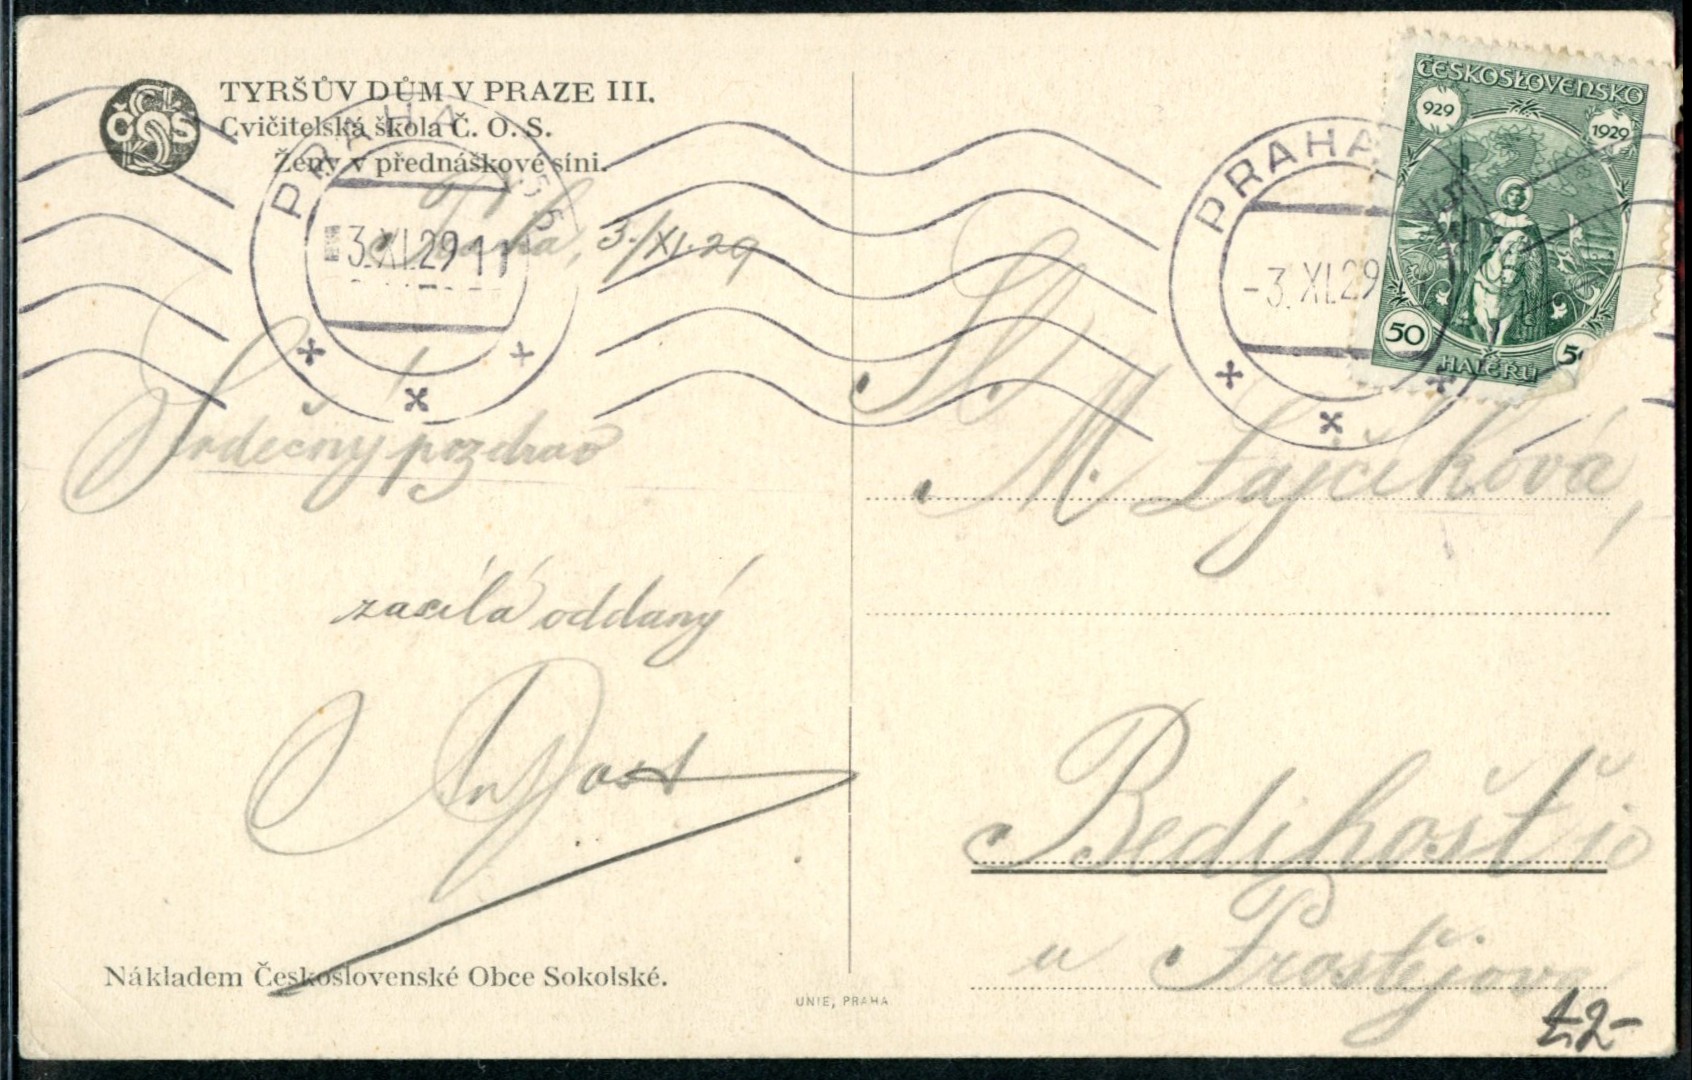 TYRŠŮV DŮM V PRAZE III.
Cvičitelská škola Č. O. S.
Ženy v přednáškové síni.
ČOS
PRAHA 55
3.XI.29 11
Praha, 3./XI.29
Srdečný pozdrav
zasílá oddaný
Nákladem Československé Obce Sokolské.
UNIE, PRAHA
ČESKOSLOVENSKO
929
1929
50
50
HALÉŘŮ
PRAHA
-3.XI.29
Sl.
M. Lajčíková,
Bedihošť
u Prostějova
£2-